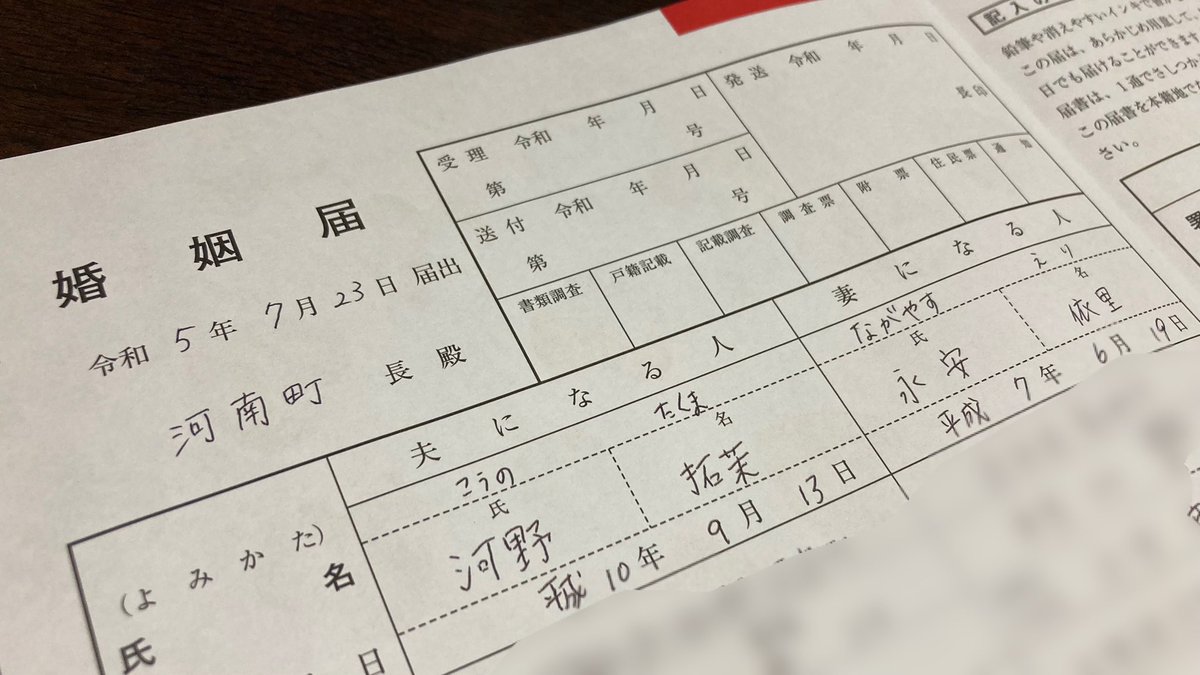 婚姻届
令和 5 年 7 月 23 日 届出
河南町 長 殿
受理 令和 年 月 日
第 号
送付 令和 年 月 日
第 号
発送 令和 年 月 日
長印
書類調査 戸籍記載 記載調査 調査票 附票 住民票 通知
夫になる人
妻になる人
(よみかた)
こうの たくま
ながやす えり
氏 名
氏 名
氏 名
河野 拓茉
永安 依里
平成 10 年 9 月 13 日
平成 7 年 6 月 19 日
日
記入の
鉛筆や消えやすいインキで書か
この届は、あらかじめ用意して、
日でも届けることができます
届書は、1通でさしつか
この届書を本籍地で
さい。